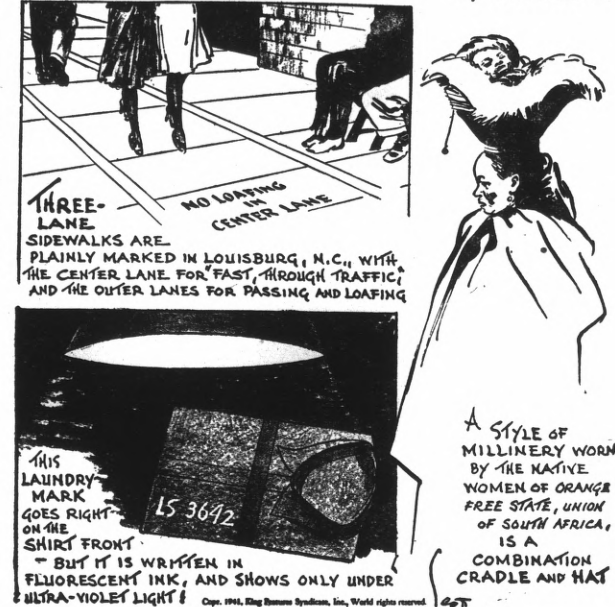 NO LOAFING
IN
CENTER LANE
THREE-
LANE
SIDEWALKS ARE
PLAINLY MARKED IN LOUISBURG, N.C., WITH
THE CENTER LANE FOR "FAST, THROUGH TRAFFIC,"
AND THE OUTER LANES FOR PASSING AND LOAFING
LS 3642
THIS
LAUNDRY
MARK
GOES RIGHT
ON THE
SHIRT FRONT
- BUT IT IS WRITTEN IN
FLUORESCENT INK, AND SHOWS ONLY UNDER
ULTRA-VIOLET LIGHT!
Copr. 1941, King Features Syndicate, Inc., World rights reserved.
A STYLE OF
MILLINERY WORN
BY THE NATIVE
WOMEN OF ORANGE
FREE STATE, UNION
OF SOUTH AFRICA,
IS A
COMBINATION
CRADLE AND HAT